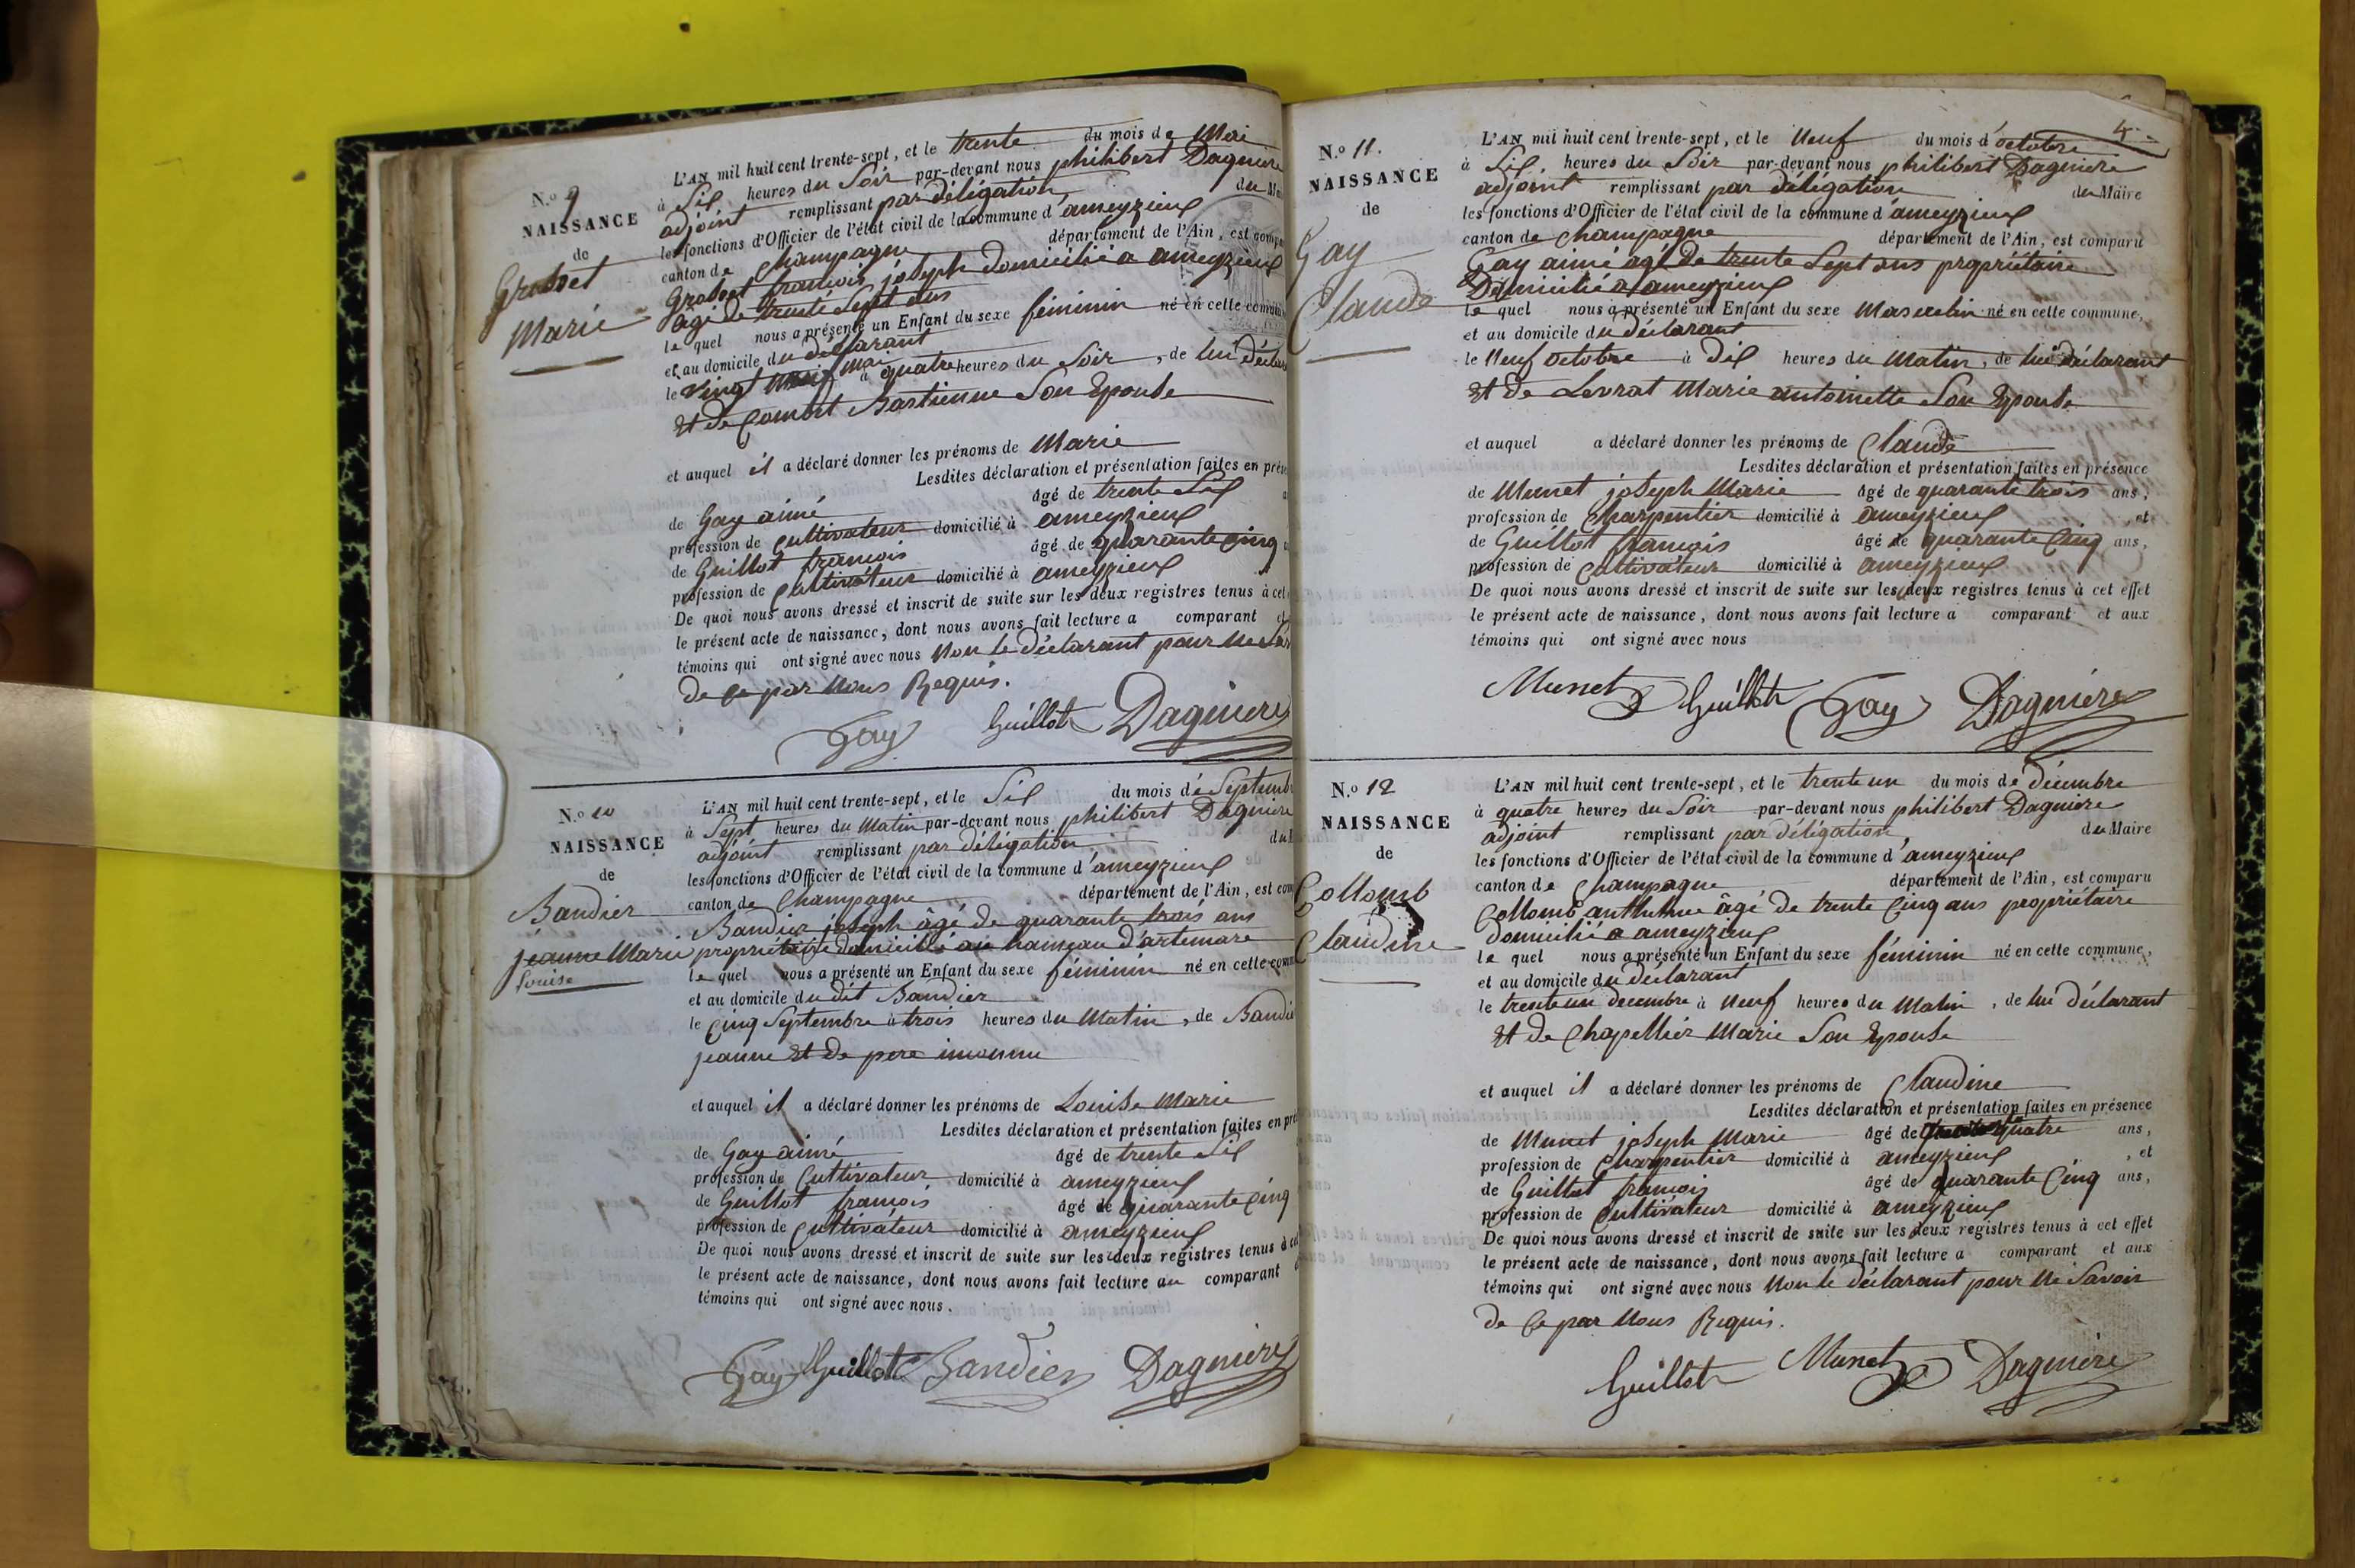 N.o 9
NAISSANCE
de
Grobset
Marie
L'AN mil huit cent trente-sept, et le trente du mois de Mai
à Six heures du Soir par-devant nous philibert Dagniere
adjoint remplissant par délégation du
les fonctions d'Officier de l'état civil de la commune d'ameyzieux
canton de Champagne département de l'Ain, est
françois joseph domicilié a ameyzieux
âgé de trente Sept ans
le quel nous a présenté un Enfant du sexe féminin né en cette
et au domicile du déclarant
le Vingt Neuf Mai à quatre heures du Soir, de lui
Et de Bastienne Son Epouse
et auquel il a déclaré donner les prénoms de Marie
Lesdites déclaration et présentation faites en
de Gay aimé âgé de trente Six
profession de Cultivateur domicilié à ameyzieux
de Guillot françois âgé de quarante cinq
profession de Cultivateur domicilié à ameyzieux
De quoi nous avons dressé et inscrit de suite sur les deux registres tenus à cet
le présent acte de naissance, dont nous avons fait lecture a comparant
témoins qui ont signé avec nous Non le déclarant pour ne
de ce par Nous Requis.
Gay Guillot Dagniere
N.o 10
NAISSANCE
de
Bandier
jeanne Marie
Louise
L'AN mil huit cent trente-sept, et le Six du mois de Septembre
à Sept heures du Matin par-devant nous philibert Dagniere
adjoint remplissant par délégation du
les fonctions d'Officier de l'état civil de la commune d'ameyzieux
canton de Champagne département de l'Ain, est
Bandier joseph âgé de quarante trois ans
propriétaire domicilié au hameau d'artemare
le quel nous a présenté un Enfant du sexe féminin né en cette
et au domicile du dit Bandier
le Cinq Septembre à trois heures du Matin, de Bandier
jeanne Et de pere inconnu
et auquel il a déclaré donner les prénoms de Louise Marie
Lesdites déclaration et présentation faites en
de Gay aimé âgé de trente Six
profession de Cultivateur domicilié à ameyzieux
de Guillot françois âgé de quarante Cinq
profession de Cultivateur domicilié à ameyzieux
De quoi nous avons dressé et inscrit de suite sur les deux registres tenus à
le présent acte de naissance, dont nous avons fait lecture au comparant
témoins qui ont signé avec nous.
Gay Guillot Bandier Dagniere
4
N.o 11.
NAISSANCE
de
Gay
Claude
L'AN mil huit cent trente-sept, et le Neuf du mois d'octobre
à Six heures du Soir par-devant nous philibert Dagniere
adjoint remplissant par délégation du Maire
les fonctions d'Officier de l'état civil de la commune d'ameyzieux
canton de Champagne département de l'Ain, est comparu
Gay aimé agé de trente Sept ans propriétaire
Domicilié a ameyzieux
le quel nous a présenté un Enfant du sexe Masculin né en cette commune,
et au domicile du déclarant
le Neuf octobre à Dix heures du Matin, de lui déclarant
Et de Levrat Marie antoinette Son Epouse
et auquel a déclaré donner les prénoms de Claude
Lesdites déclaration et présentation faites en présence
de Munet joseph Marie âgé de quarante trois ans,
profession de Charpentier domicilié à ameyzieux, et
de Guillot françois âgé de quarante Cinq ans,
profession de Cultivateur domicilié à ameyzieux
De quoi nous avons dressé et inscrit de suite sur les deux registres tenus à cet effet
le présent acte de naissance, dont nous avons fait lecture a comparant et aux
témoins qui ont signé avec nous
Munet Guillot Gay Dagniere
N.o 12
NAISSANCE
de
Collomb
Claudine
L'AN mil huit cent trente-sept, et le trente un du mois de décembre
à quatre heures du Soir par-devant nous philibert Dagniere
adjoint remplissant par délégation du Maire
les fonctions d'Officier de l'état civil de la commune d'ameyzieux
canton de Champagne département de l'Ain, est comparu
Collomb anthelme âgé de trente Cinq ans propriétaire
domicilié a ameyzieux
le quel nous a présenté un Enfant du sexe féminin né en cette commune,
et au domicile du déclarant
le trente un decembre à Neuf heures du Matin, de lui déclarant
Et de Chapellier Marie Son Epouse
et auquel il a déclaré donner les prénoms de Claudine
Lesdites déclaration et présentation faites en présence
de Munet joseph Marie âgé de quatre ans,
profession de Charpentier domicilié à ameyzieux, et
de Guillot françois âgé de quarante Cinq ans,
profession de Cultivateur domicilié à ameyzieux
De quoi nous avons dressé et inscrit de suite sur les deux registres tenus à cet effet
le présent acte de naissance, dont nous avons fait lecture a comparant et aux
témoins qui ont signé avec nous Non le déclarant pour Ne Savoir
de Ce par Nous Requis.
Guillot Munet Dagniere